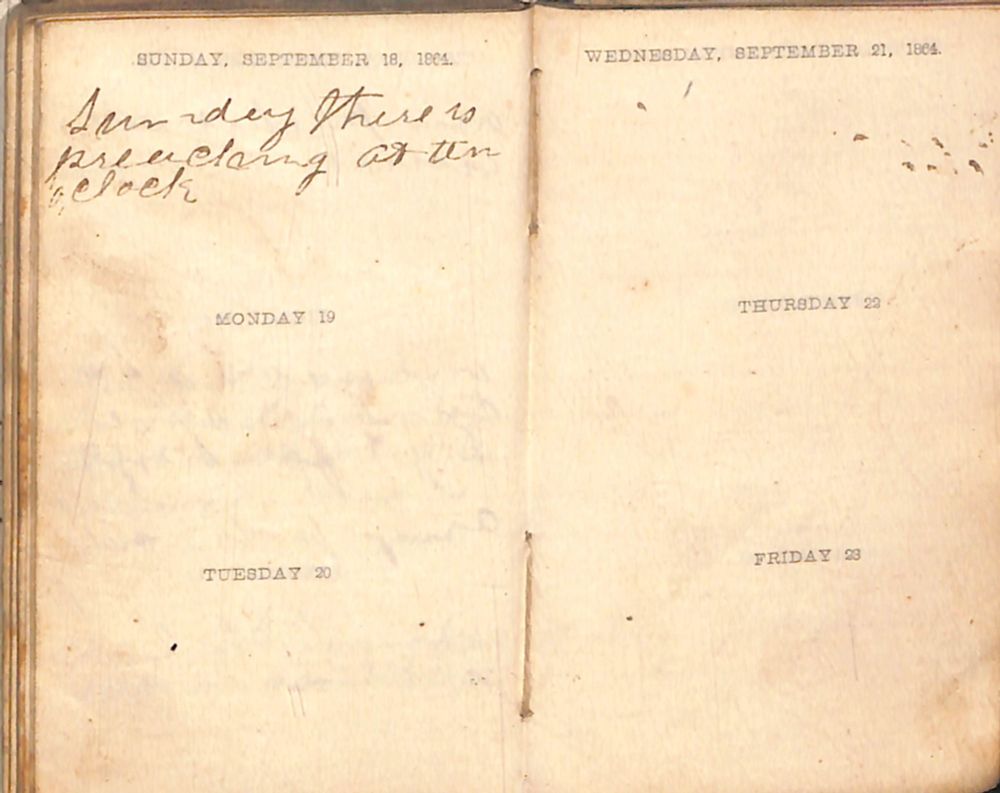 SUNDAY, SEPTEMBER 18, 1864.
Sunday there is
preaching at ten
o,clock
MONDAY 19
TUESDAY 20
WEDNESDAY, SEPTEMBER 21, 1864.
THURSDAY 22
FRIDAY 23